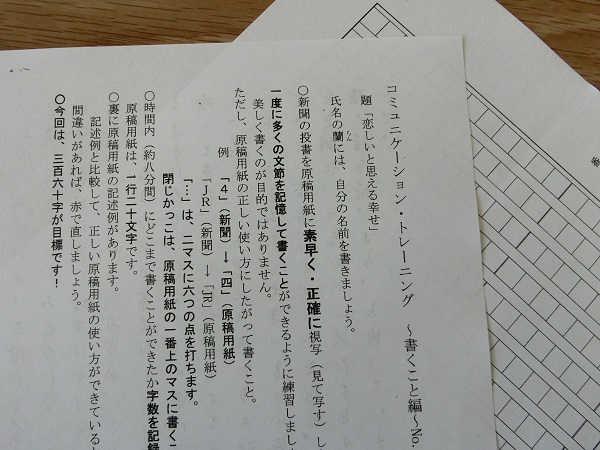 コミュニケーション・トレーニング　～書くこと編～No.
題「恋しいと思える幸せ」
氏名の蘭には、自分の名前を書きましょう。
らん
○新聞の投書を原稿用紙に素早く・正確に視写（見て写す）し
一度に多くの文節を記憶して書くことができるように練習しまし
美しく書くのが目的ではありません。
ただし、原稿用紙の正しい使い方にしたがって書くこと。
例　「４」（新聞）→「四」（原稿用紙）
「ＪＲ」（新聞）→「JR」（原稿用紙）
「…」は、二マスに六つの点を打ちます。
閉じかっこは、原稿用紙の一番上のマスに書く
○時間内（約八分間）にどこまで書くことができたか字数を記録
原稿用紙は、一行二十文字です。
○裏に原稿用紙の記述例があります。
記述例と比較して、正しい原稿用紙の使い方ができているか
間違いがあれば、赤で直しましょう。
○今回は、三百六十字が目標です！